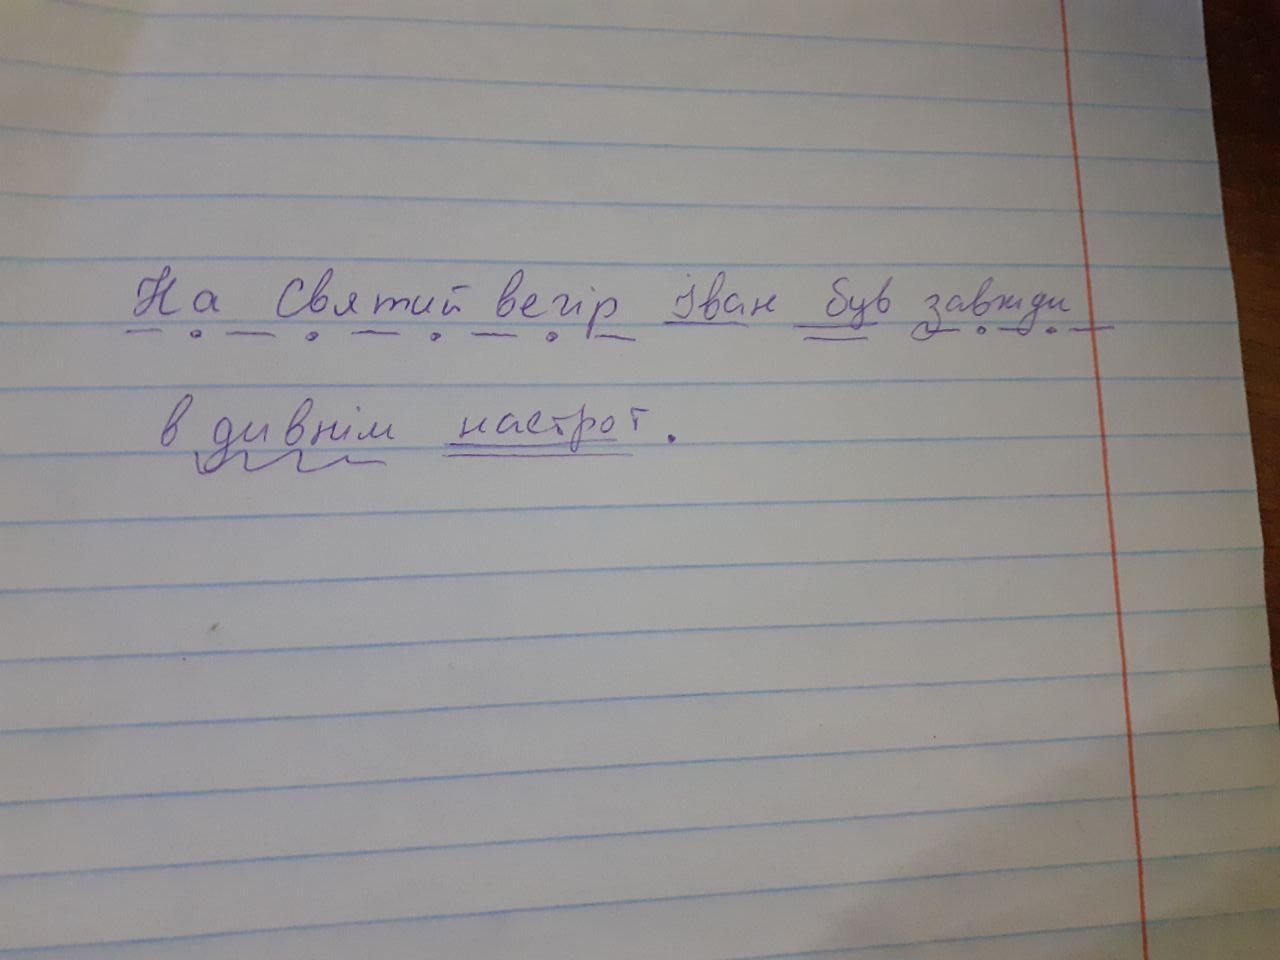 На Святий вечір Іван був завжди
в дивнім настрої.